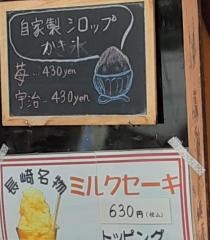 自家製シロップ
かき氷
苺...430yen
宇治...430yen
長崎名物
ミルクセーキ
630円(税込)
トッピング